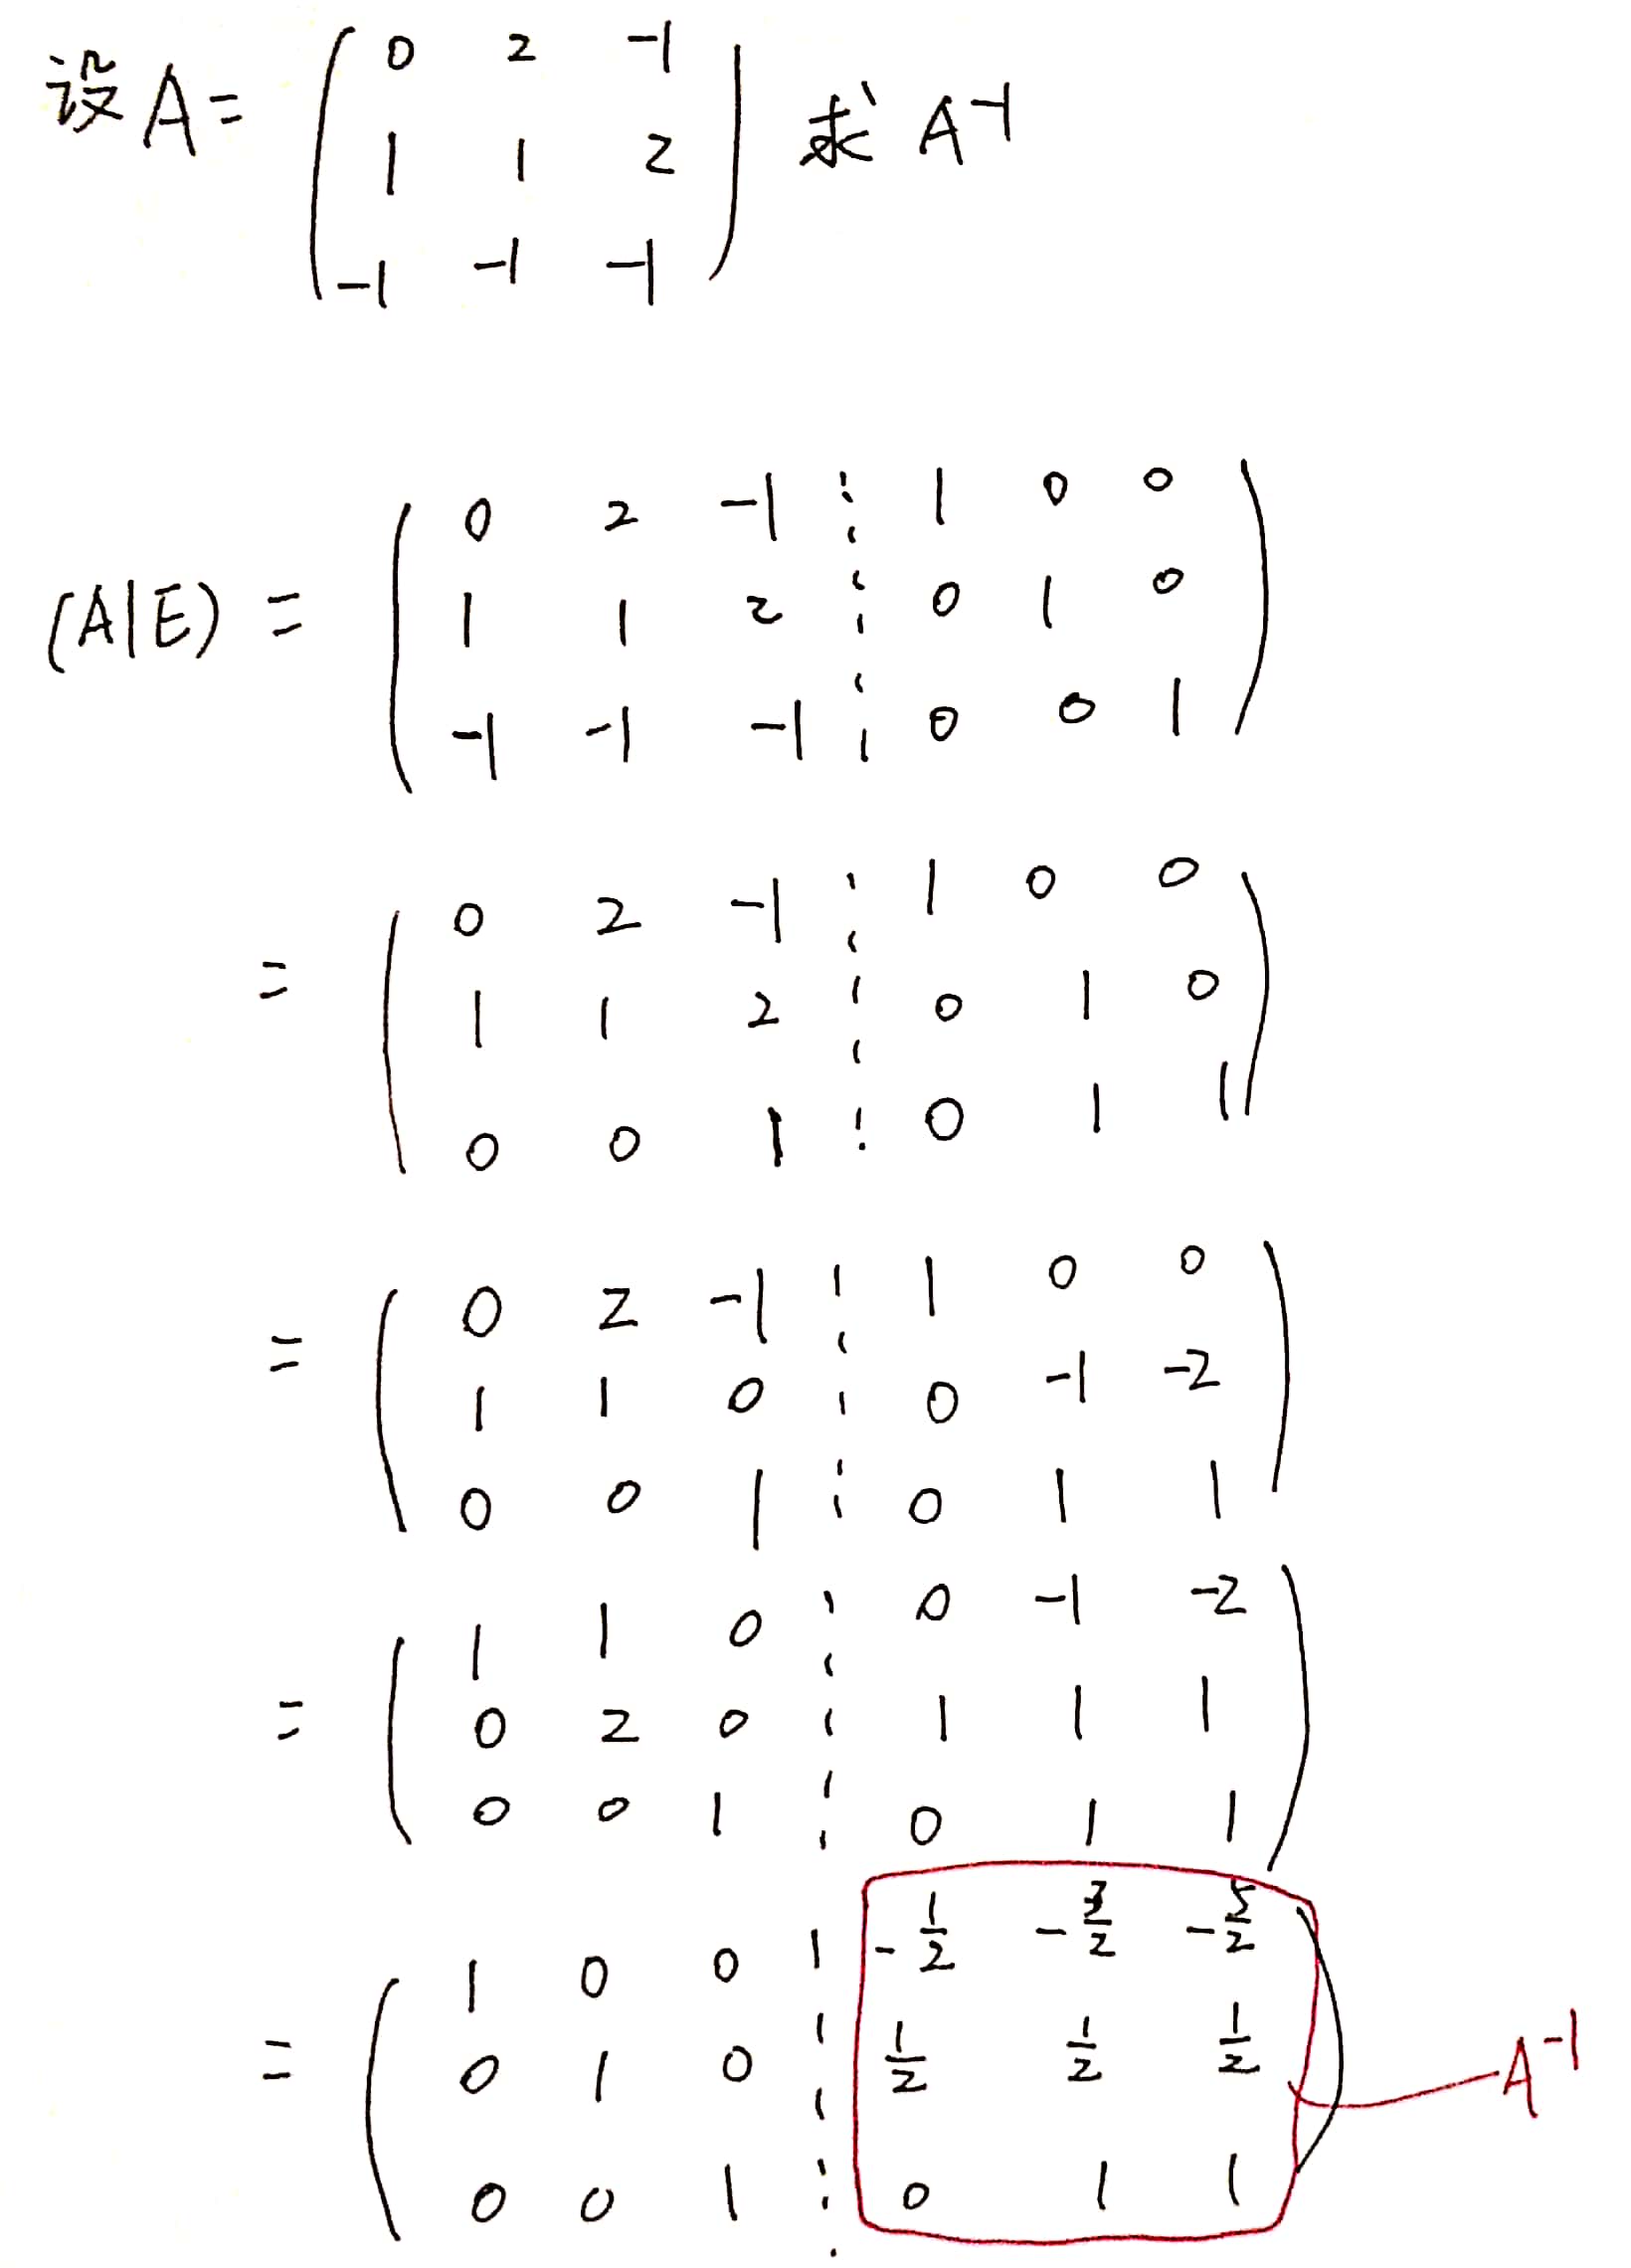 设 A = ( 0 2 -1 ) 求 A⁻¹
1 1 2
-1 -1 -1
(A|E) = ( 0 2 -1 ⋮ 1 0 0 )
1 1 2 ⋮ 0 1 0
-1 -1 -1 ⋮ 0 0 1
= ( 0 2 -1 ⋮ 1 0 0 )
1 1 2 ⋮ 0 1 0
0 0 1 ⋮ 0 1 1
= ( 0 2 -1 ⋮ 1 0 0 )
1 1 0 ⋮ 0 -1 -2
0 0 1 ⋮ 0 1 1
= ( 1 1 0 ⋮ 0 -1 -2 )
0 2 0 ⋮ 1 1 1
0 0 1 ⋮ 0 1 1
= ( 1 0 0 ⋮ -1/2 -3/2 -5/2 )
0 1 0 ⋮ 1/2 1/2 1/2 A⁻¹
0 0 1 ⋮ 0 1 1